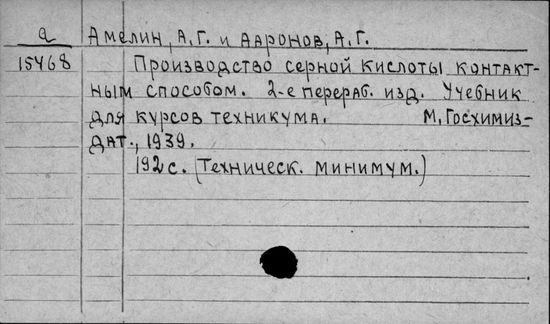 а Амелин, А.Г. и Ааронов, А.Г.
15468 Производство серной кислоты контакт-
ным способом. 2-е перераб. изд. Учебник
для курсов техникума. М., Госхимиз-
дат, 1939.
192 с. (Техническ. минимум.)